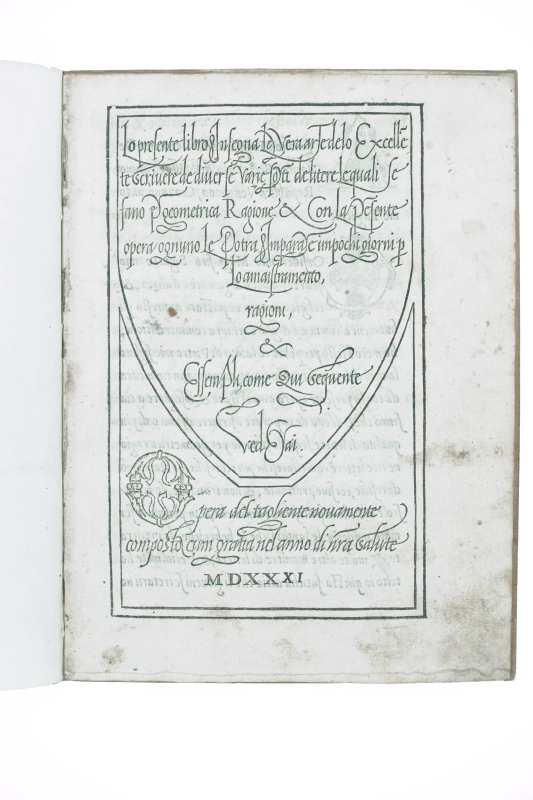 Lo presente libro Insegna La Vera arte delo Excellẽ
te scriuere de diuerse varie sorti de litere lequali se
fano p̱ geometrica Ragione. & Con la P̱sente
opera ognuno le Potra Imparare impochi giorni p̱
lo amaistramento,
ragioni,
&
Essempli, come Qui sequente
vedrai.
Opera del tagliente nouamente
composta cum gratia nel anno di nr̃a salute
MDXXXI